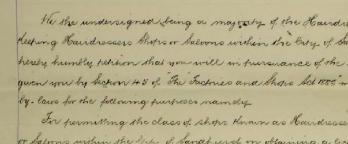 We the undersigned being a majority of the Hairdre
keeping Hairdressers Shops or Saloons within the City of
hereby humbly petition that you will in pursuance of the
given you by Section 45 of "The Factories and Shops Act 1885"
by-laws for the following purposes namely
For permitting the class of shops known as Hairdresse
or Saloons within the City of Sandhurst on obtaining a